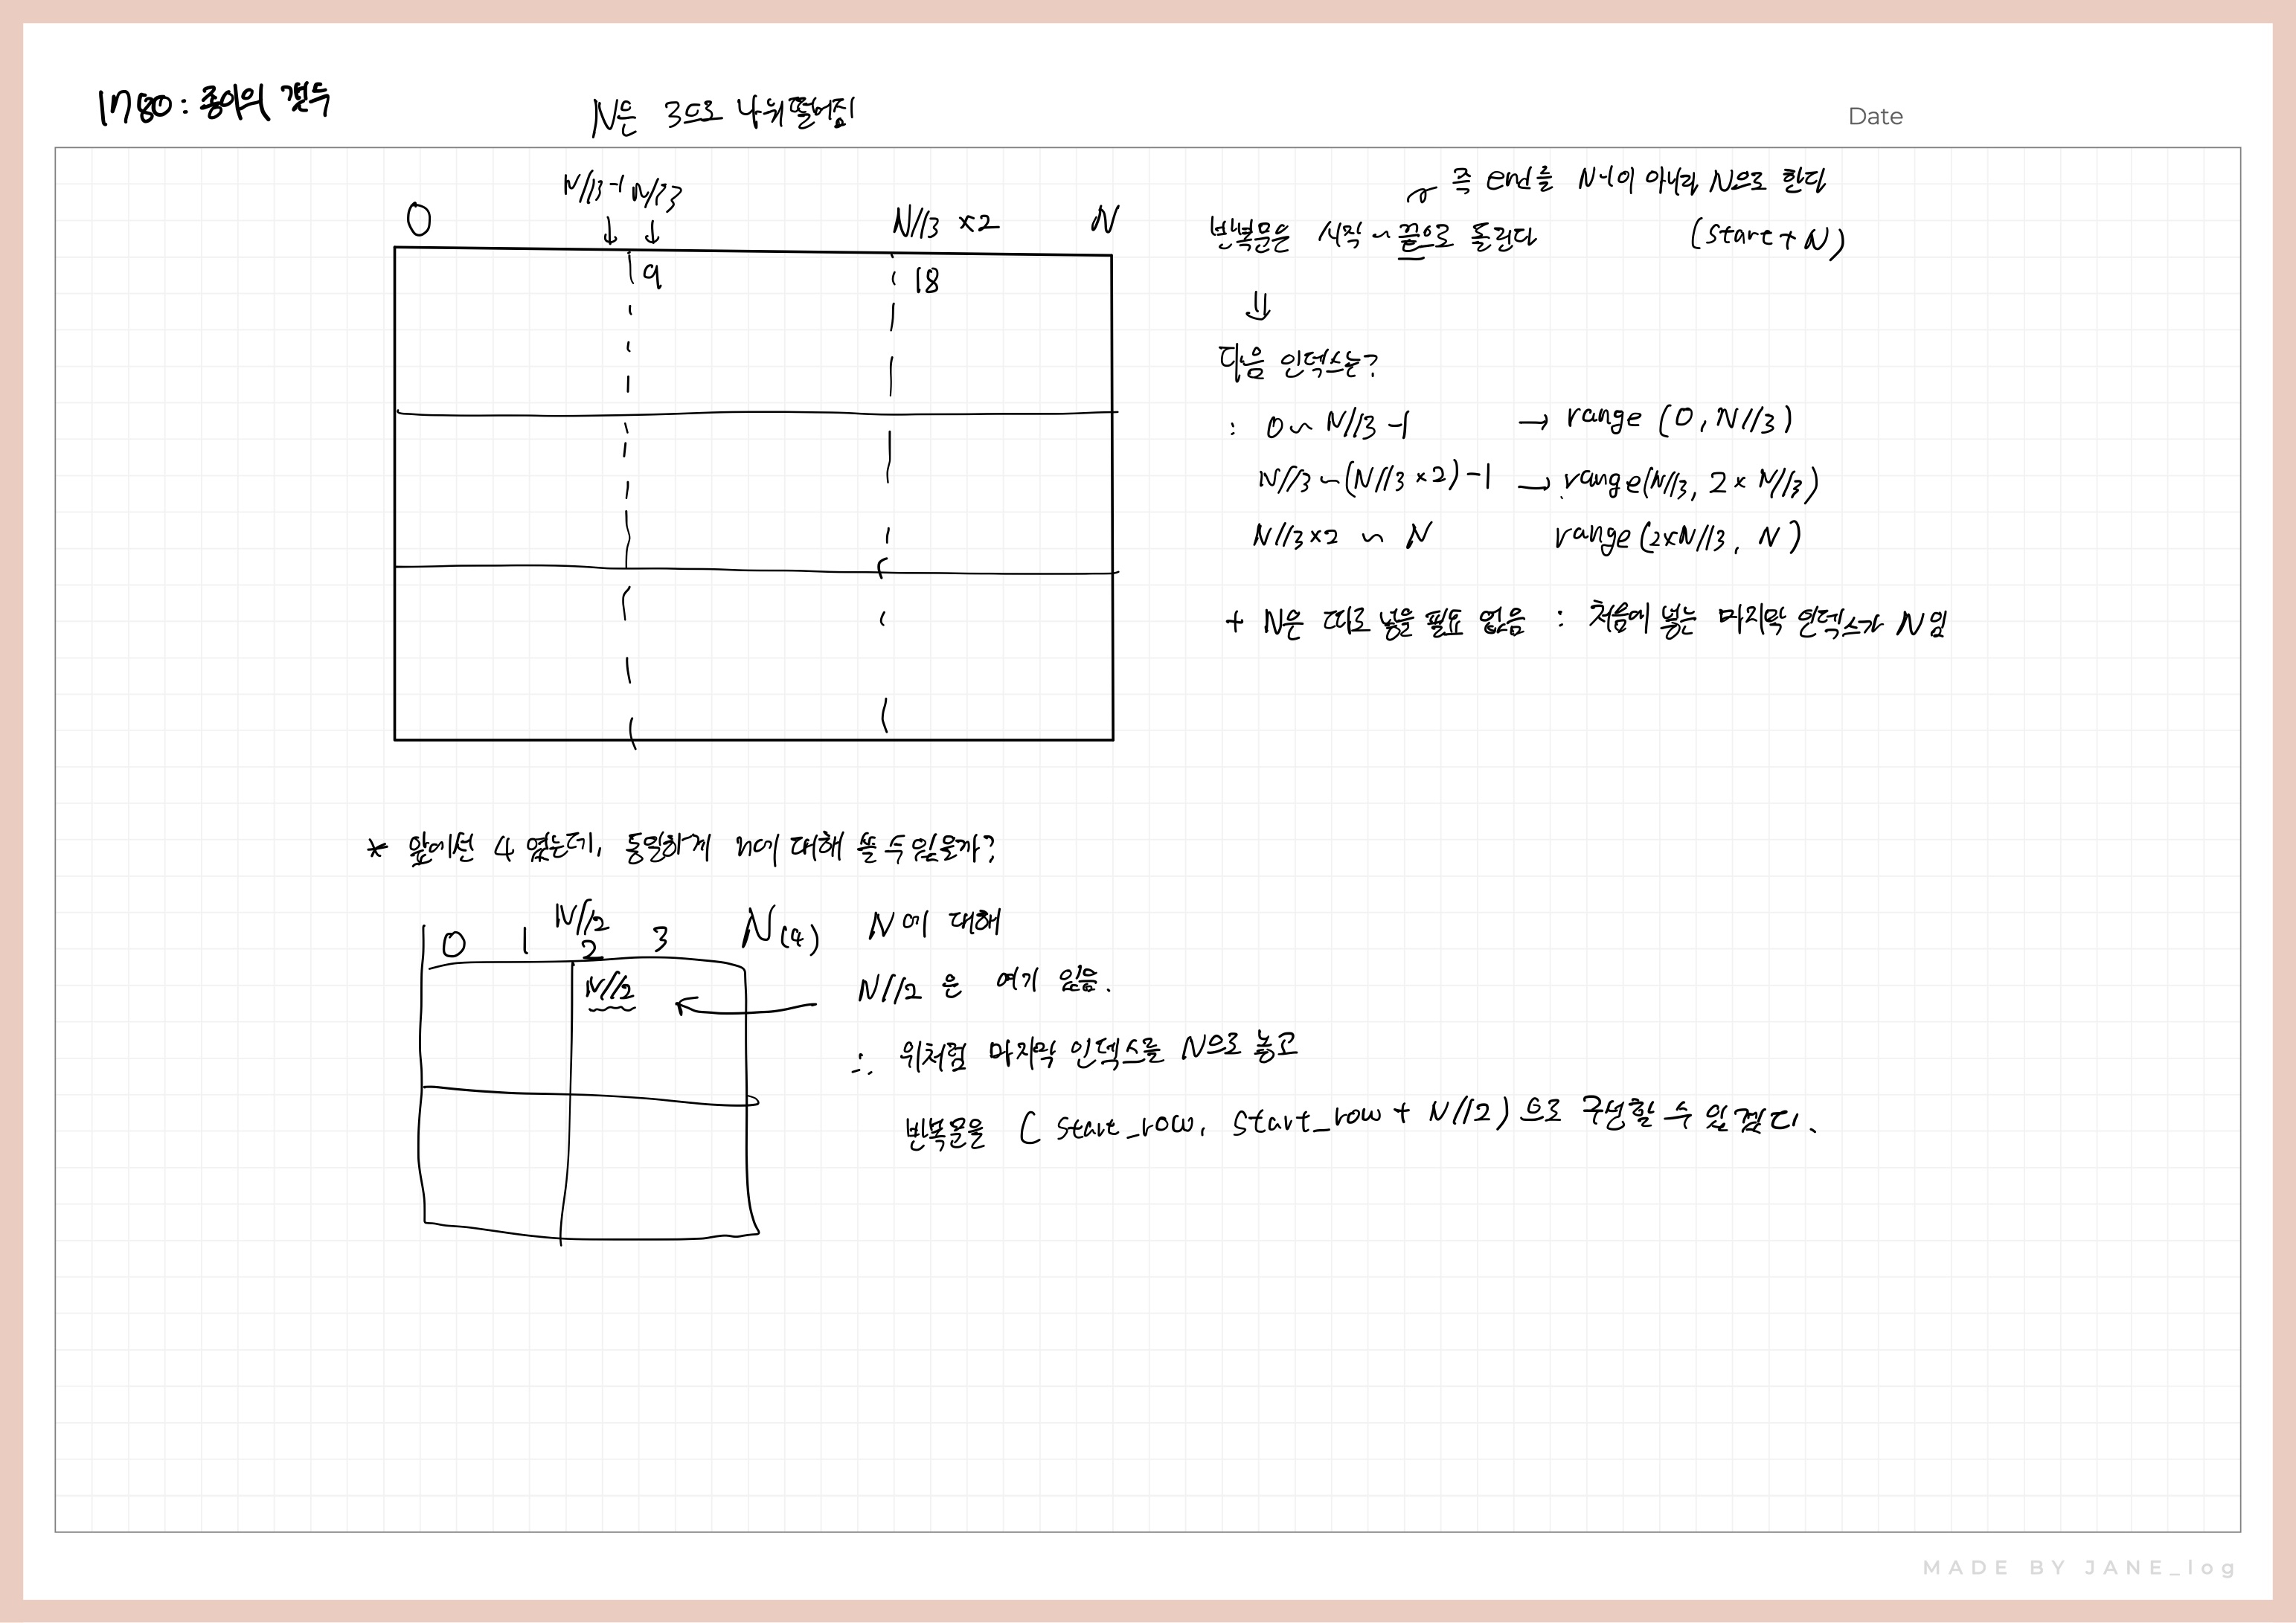 1780 : 종이의 갯수
N은 3으로 나눠떨어짐
Date
N//3-1 N//3
0 N//3 ×2 N
9 18
즉 end를 N-1이 아니라 N으로 한다
반복문은 시작~끝으로 돌린다 (start + N)
다음 인덱스는?
: 0 ~ N//3 -1 → range (0, N//3)
N//3 ~ (N//3 ×2) -1 → range(N//3, 2 × N//3)
N//3×2 ~ N range(2×N//3, N)
+ N은 따로 넣을 필요 없음 : 처음에 넣는 마지막 인덱스가 N임
* 앞에선 4 였는데, 동일하게 n에 대해 쓸 수 있을까?
N//2
0 1 2 3 N(4)
N//2
N에 대해
N//2 은 여기 있음.
∴ 위처럼 마지막 인덱스를 N으로 놓고
반복문을 ( start_row, start_row + N//2) 으로 구성할 수 있겠다.
MADE BY JANE_log